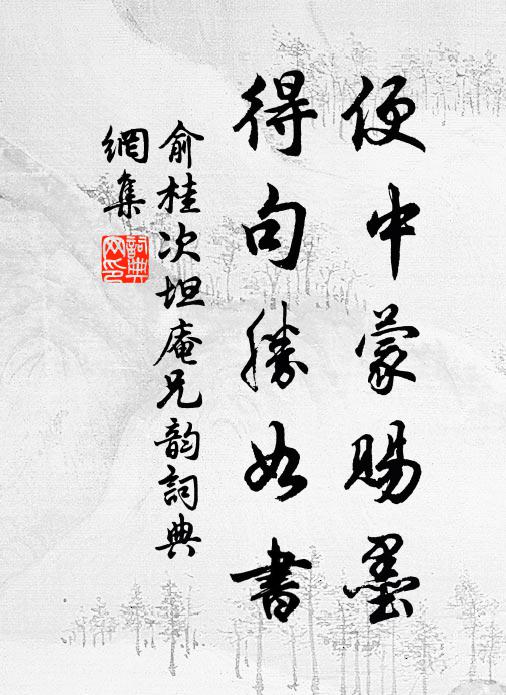 便中蒙賜墨
得句勝如書
俞桂次坦庵兄韵詞典
網集
詞典
网印